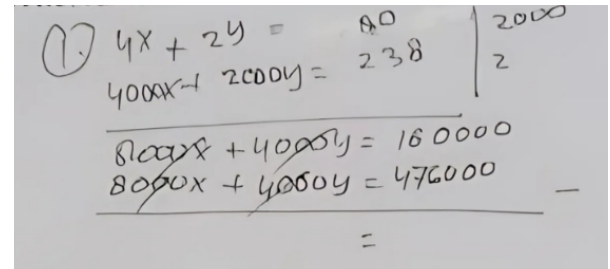 ① 4x + 2y = 80 | 2000
4000x + 2000y = 238 | 2
8000x + 4000y = 160000
8000x + 4000y = 476000 -
=